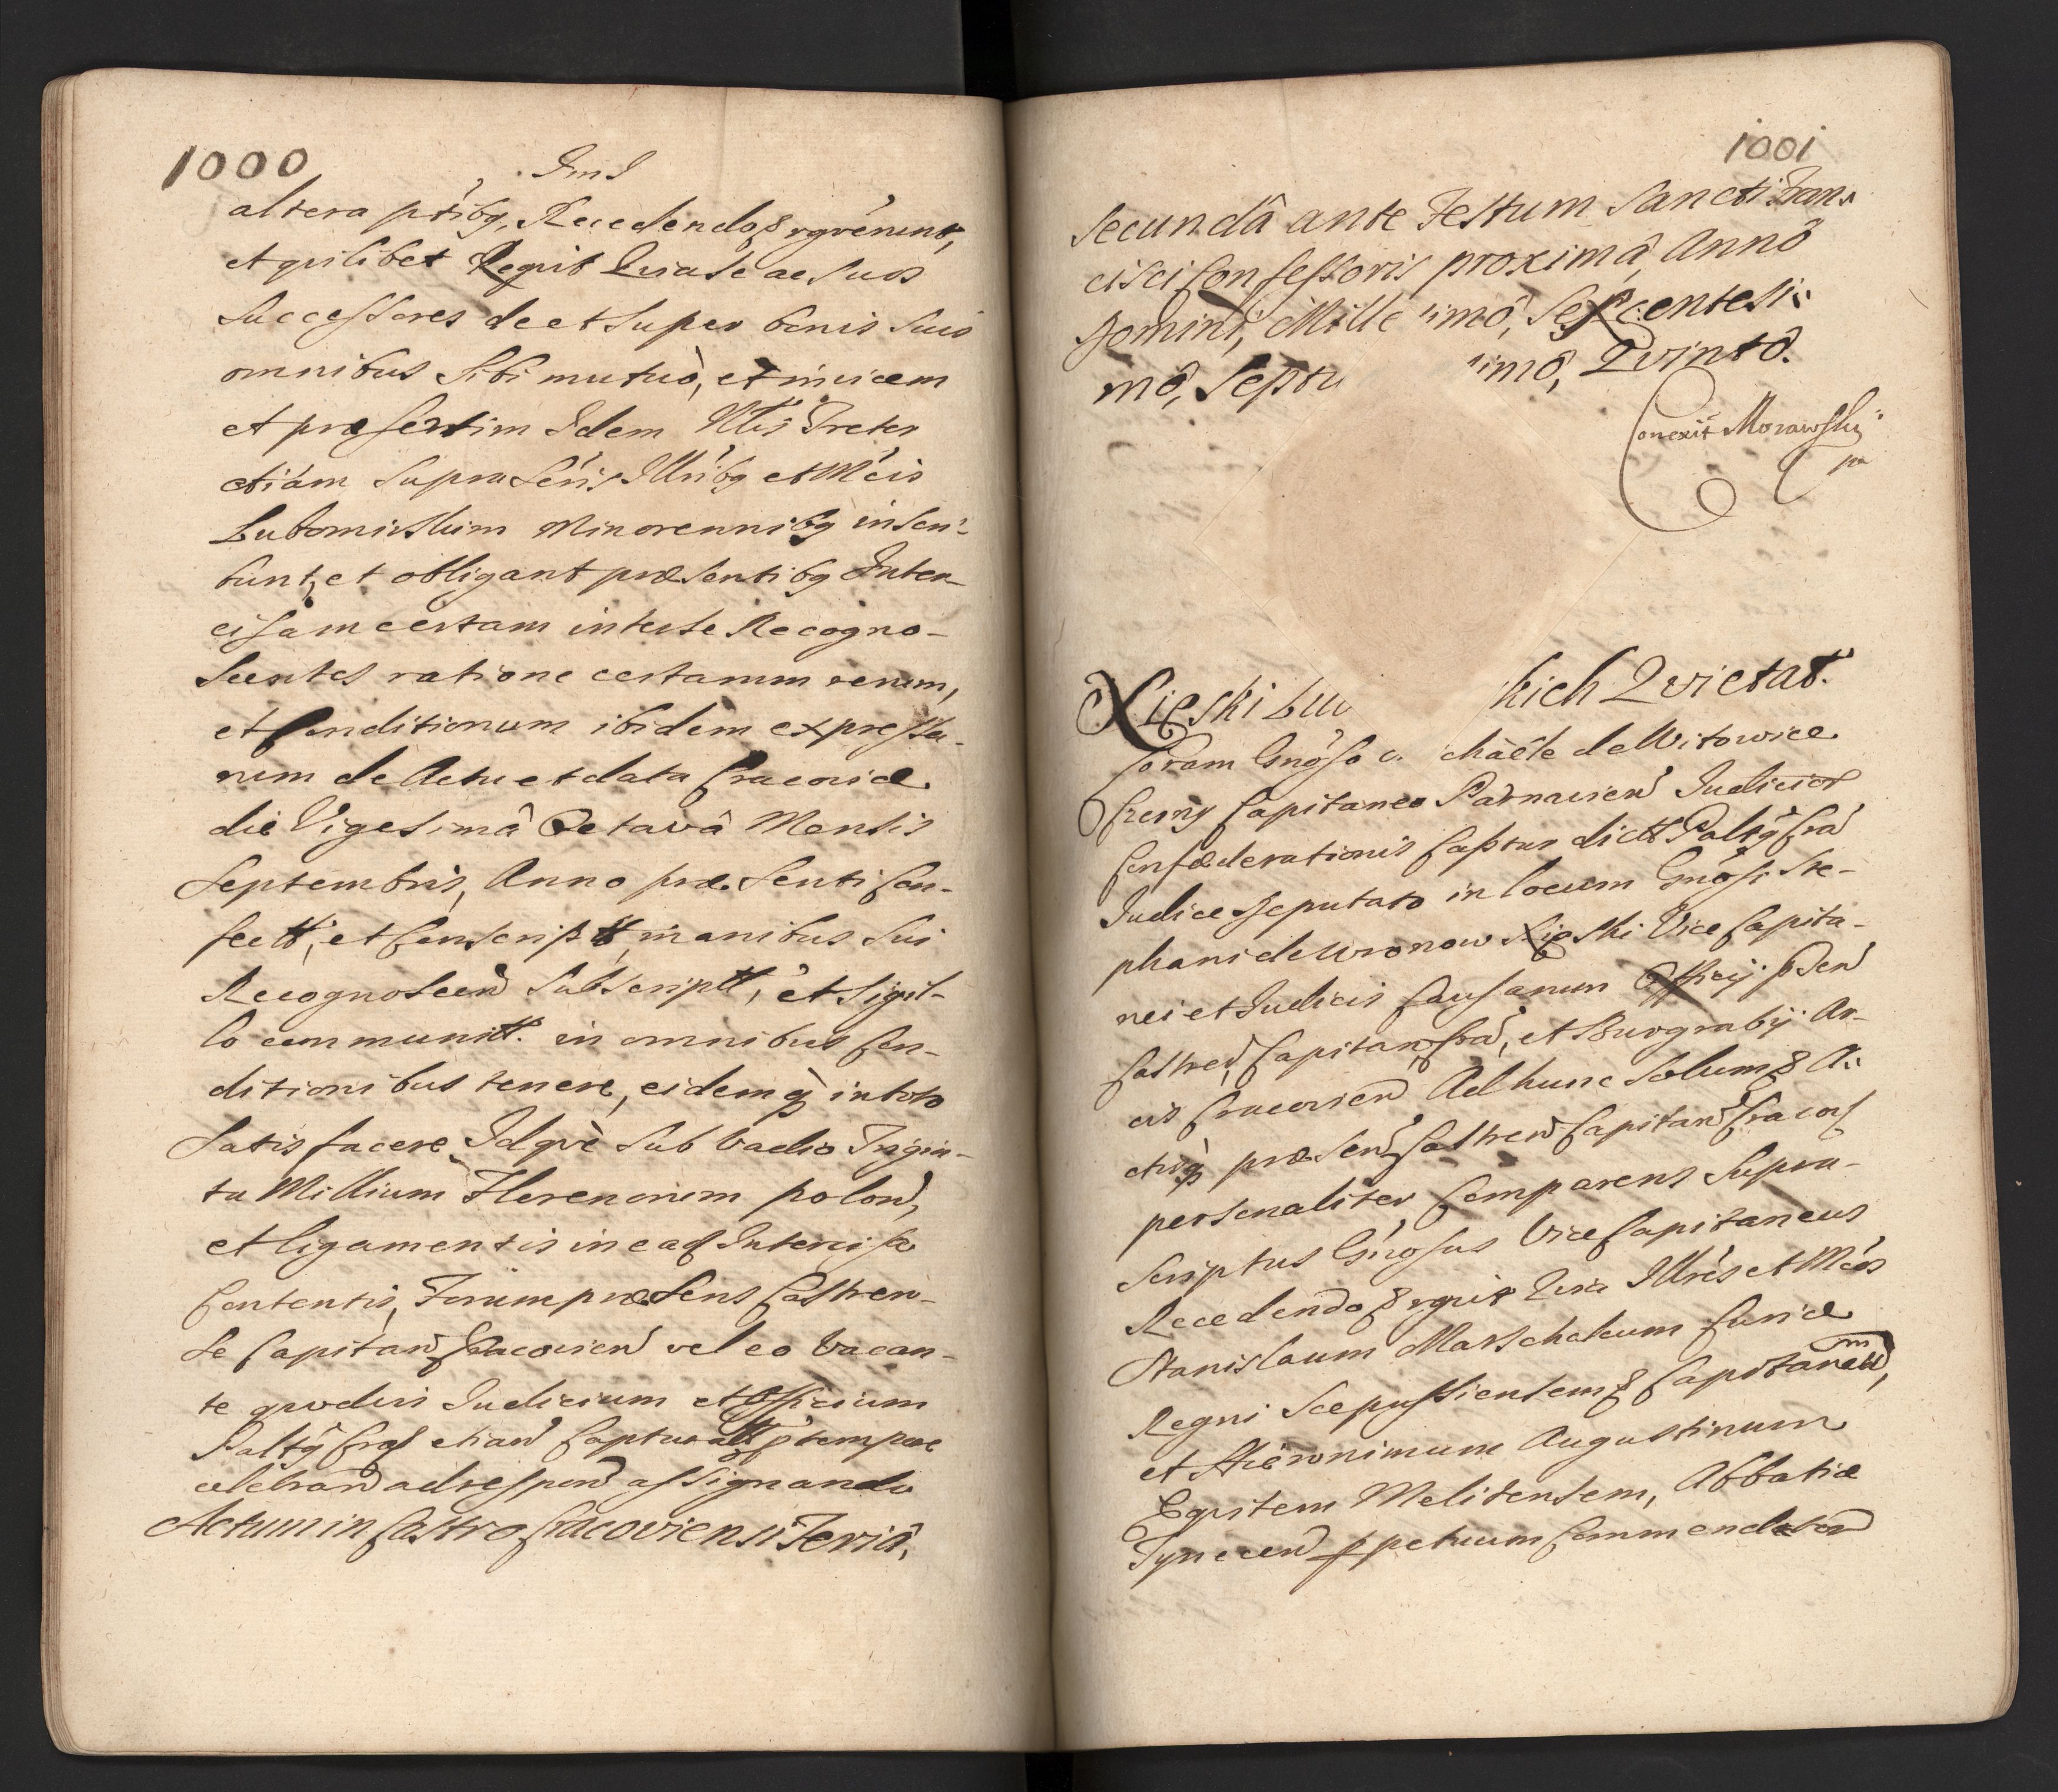 1000
altera ptibg, Recedendo & rgverunt,
et quilibet Regnit Quia se ac suos
Successores de et super bonis suis
omnibus sibi mutuò, et invicem
et præsertim Idem Treter
etiám supra Scris Illribg et Mcis
Lubomirskim Minorennibg inscri-
bunt, et obligant præsentibg Inter-
cisam certam inter se Recogno-
scentes ratione certarum rerum,
et Conditionum ibidem expressa-
rum de Actu et data Cracoviæ
die Vigesimâ Octavâ Mensis
Septembris, Anno præsenti Con-
fectt, et Conscriptt, manibus sui
Recognoscen Subscriptt, et Sigil-
lo communitt. in omnibus Con-
ditionibus tenere, eidemq in toto
satisfacere Idqvè sub vadio Trigin-
ta Millium Florenorum polon,
et ligamentis in ead Intercisa
Contentis, Forum præsens Castren-
se Capitan Cracovien vel eo vacan-
te quodvis Judicium et Officium
Paltg Cra etian Captur tempore
celebran ad respon assignando
Actum in Castro Cracoviensi Feriâ,
1001
Secundâ ante Festum Sancti Fran
cisci Confessoris proximâ, Annô
Domini, Mille imô, Septentesi
mô, Septu imô, Quintô.
Correxit Morawski
Xięski Lu kich Qvietat.
Coram Gnoso chaële de Witowice
Czerny Capitaneo Parnavien Judicior
Confæderationis Captur dictt Paltg Cra
Judice Deputato in locum Gnosi Ste-
phani de Wronow Xięski Vice Capita-
nei et Judicis Causarum Officij
Castren, Capitan Cra, et Burgrabij Ar-
cis Cracovien Ad hunc solum & A
ctuq præsen Castren Capitan Cracov
personaliter Comparens Supra-
scriptus Gnosus Vice Capitaneus
Recedendo & rgvit Quia Illres et Mcos
Stanislaum Marschalcum Curiæ
Regni Scepussiensem & Capitaneum,
et Hieronimum Augustinum
Eqvitem Melitensem, Abbatiæ
Tynecen ppetuum Commendator